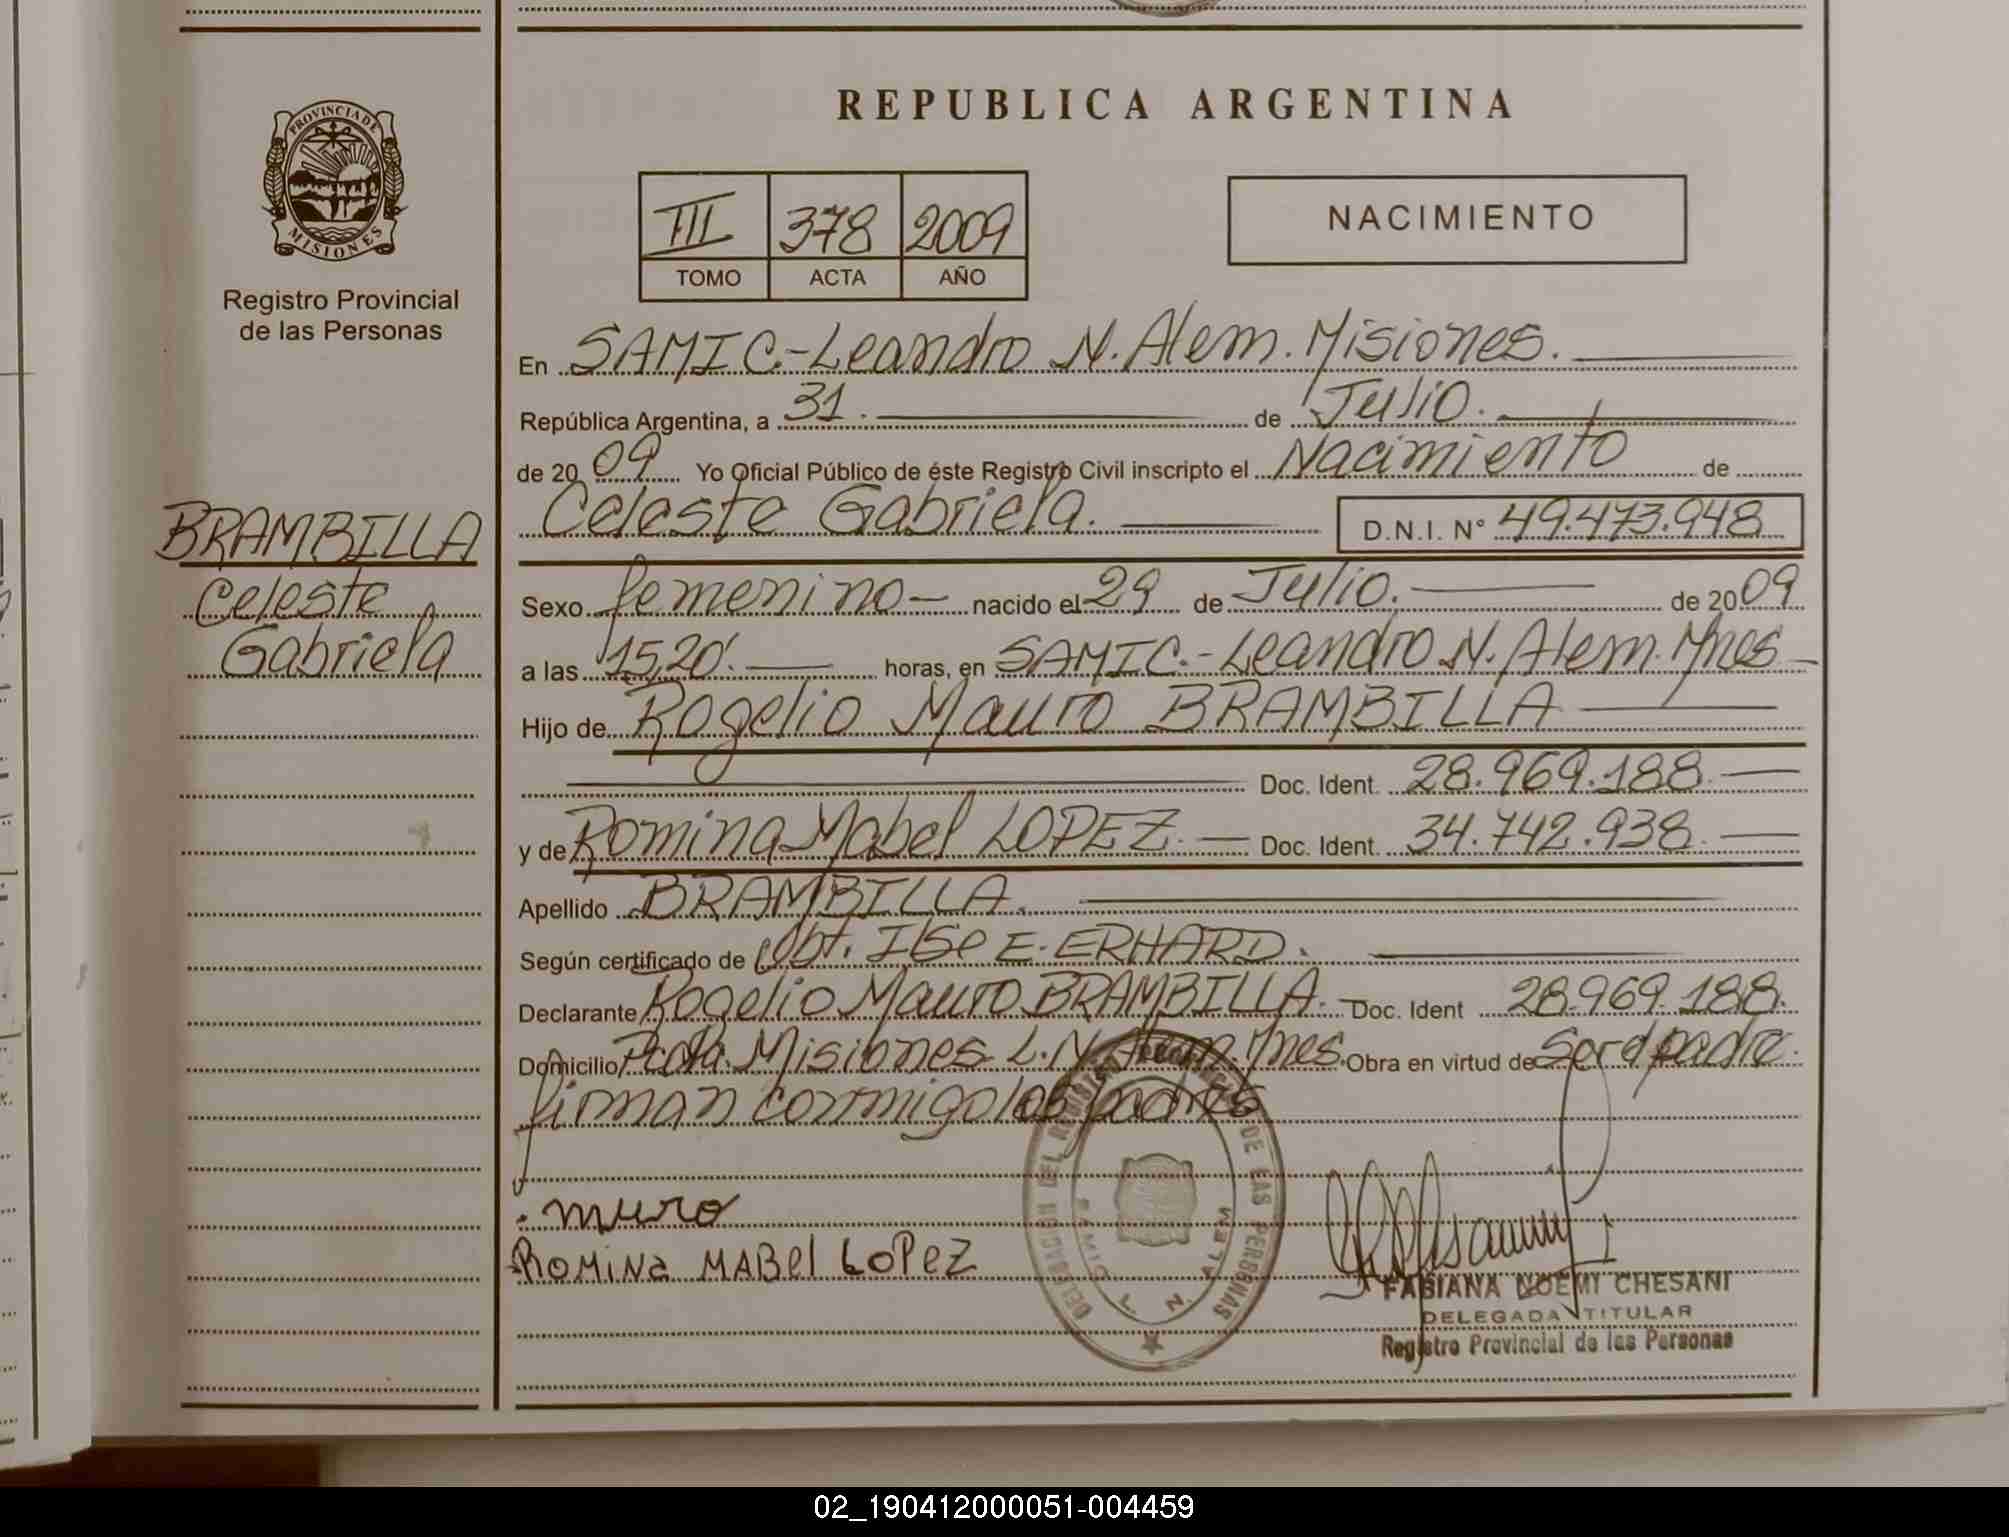 REPUBLICA ARGENTINA
PROVINCIA DE
MISIONES
Registro Provincial
de las Personas
III 378 2009
TOMO ACTA AÑO
NACIMIENTO
En SAMIC.-Leandro N. Alem. Misiones.
República Argentina, a 31. de Julio.
de 20 09 Yo Oficial Público de éste Registro Civil inscripto el Nacimiento de
Celeste Gabriela. D.N.I. N° 49.473.948
BRAMBILLA
Celeste
Gabriela
Sexo femenino nacido el 29 de Julio. de 2009
a las 15,20'. horas, en SAMIC.-Leandro N. Alem. Mnes
Hijo de Rogelio Mauro BRAMBILLA
Doc. Ident. 28.969.188
y de Romina Mabel LOPEZ. Doc. Ident. 34.742.938
Apellido BRAMBILLA.
Según certificado de Obt. Ilse E. ERHARD.
Declarante Rogelio Mauro BRAMBILLA. Doc. Ident 28.969.188.
Domicilio Pcata. Misiones L.N. Alem. Mnes. Obra en virtud de Ser el padre.
firman conmigo los padres
muro
ROMINA MABEl LOPEZ
DELEGACION DEL REGISTRO PROVINCIAL DE LAS PERSONAS
SAMIC L. N. ALEM
FABIANA NOEMI CHESANI
DELEGADA TITULAR
Registro Provincial de las Personas
02_190412000051-004459